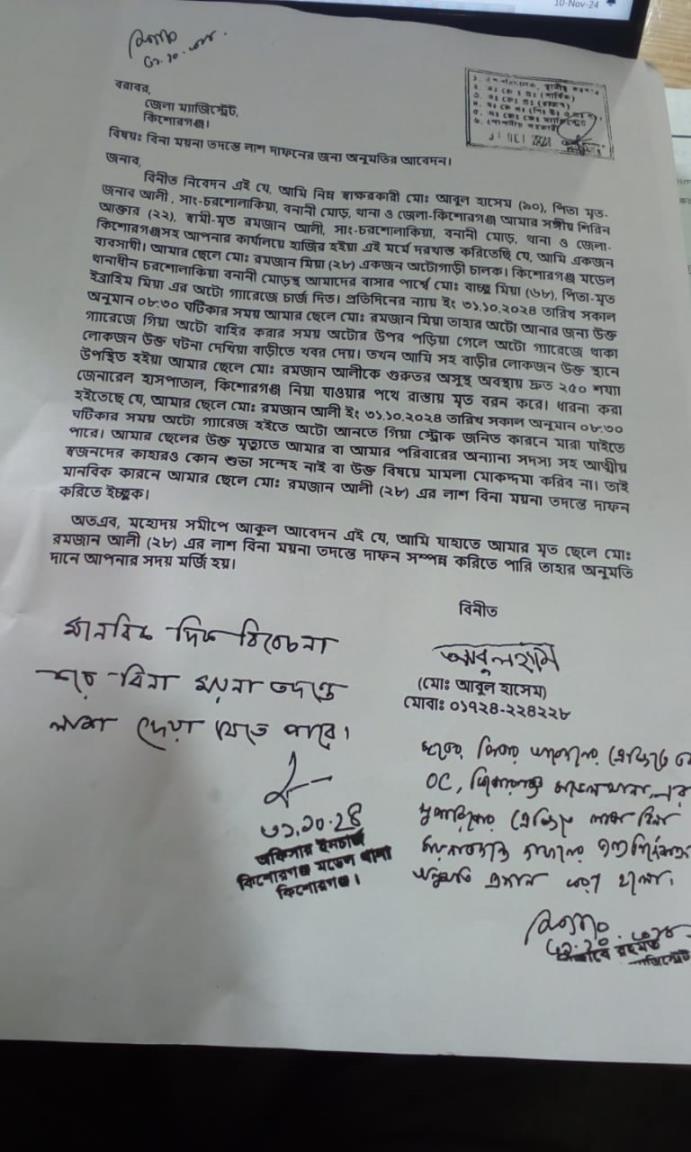 10-Nov-24
৩১.১০.২৪
বরাবর,
জেলা ম্যাজিস্ট্রেট,
কিশোরগঞ্জ।
বিষয়ঃ বিনা ময়না তদন্তে লাশ দাফনের জন্য অনুমতির আবেদন।
জনাব,
বিনীত নিবেদন এই যে, আমি নিম্ন স্বাক্ষরকারী মোঃ আবুল হাসেম (৯০), পিতা মৃত-
জনাব আলী, সাং-চরশোলাকিয়া, বনানী মোড়, থানা ও জেলা-কিশোরগঞ্জ আমার সঙ্গীয় শিরিন
আক্তার (২২), স্বামী-মৃত রমজান আলী, সাং-চরশোলাকিয়া, বনানী মোড়, থানা ও জেলা-
কিশোরগঞ্জসহ আপনার কার্যালয়ে হাজির হইয়া এই মর্মে দরখাস্ত করিতেছি যে, আমি একজন
ব্যবসায়ী। আমার ছেলে মোঃ রমজান মিয়া (২৮) একজন অটোগাড়ী চালক। কিশোরগঞ্জ মডেল
থানাধীন চরশোলাকিয়া বনানী মোড়স্থ আমাদের বাসার পার্শ্বে মোঃ বাচ্চু মিয়া (৬৮), পিতা-মৃত
ইব্রাহিম মিয়া এর অটো গ্যারেজে চার্জ দিত। প্রতিদিনের ন্যায় ইং ৩১.১০.২০২৪ তারিখ সকাল
অনুমান ০৮:৩০ ঘটিকার সময় আমার ছেলে মোঃ রমজান মিয়া তাহার অটো আনার জন্য উক্ত
গ্যারেজে গিয়া অটো বাহির করার সময় অটোর উপর পড়িয়া গেলে অটো গ্যারেজে থাকা
লোকজন উক্ত ঘটনা দেখিয়া বাড়ীতে খবর দেয়। তখন আমি সহ বাড়ীর লোকজন উক্ত স্থানে
উপস্থিত হইয়া আমার ছেলে মোঃ রমজান আলীকে গুরুতর অসুস্থ অবস্থায় দ্রুত ২৫০ শয্যা
জেনারেল হাসপাতাল, কিশোরগঞ্জ নিয়া যাওয়ার পথে রাস্তায় মৃত বরন করে। ধারনা করা
হইতেছে যে, আমার ছেলে মোঃ রমজান আলী ইং ৩১.১০.২০২৪ তারিখ সকাল অনুমান ০৮:৩০
ঘটিকার সময় অটো গ্যারেজ হইতে অটো আনতে গিয়া স্ট্রোক জনিত কারনে মারা যাইতে
পারে। আমার ছেলের উক্ত মৃত্যুতে আমার বা আমার পরিবারের অন্যান্য সদস্য সহ আত্মীয়
স্বজনদের কাহারও কোন শুভা সন্দেহ নাই বা উক্ত বিষয়ে মামলা মোকদ্দমা করিব না। তাই
মানবিক কারনে আমার ছেলে মোঃ রমজান আলী (২৮) এর লাশ বিনা ময়না তদন্তে দাফন
করিতে ইচ্ছুক।
অতএব, মহোদয় সমীপে আকুল আবেদন এই যে, আমি যাহাতে আমার মৃত ছেলে মোঃ
রমজান আলী (২৮) এর লাশ বিনা ময়না তদন্তে দাফন সম্পন্ন করিতে পারি তাহার অনুমতি
দানে আপনার সদয় মর্জি হয়।
বিনীত
আবুল হাসেম
(মোঃ আবুল হাসেম)
মোবাঃ ০১৭২৪-২২৪২২৮
মানবিক দিক বিবেচনা
করে বিনা ময়না তদন্তে
লাশ দেয়া যেতে পারে।
৩১.১০.২৪
অফিসার ইনচার্জ
কিশোরগঞ্জ মডেল থানা
কিশোরগঞ্জ।
OC, কিশোরগঞ্জ মডেল থানা এর
সুপারিশের প্রেক্ষিতে লাশ বিনা
ময়নাতদন্তে দাফনের
অনুমতি প্রদান করা হলো।